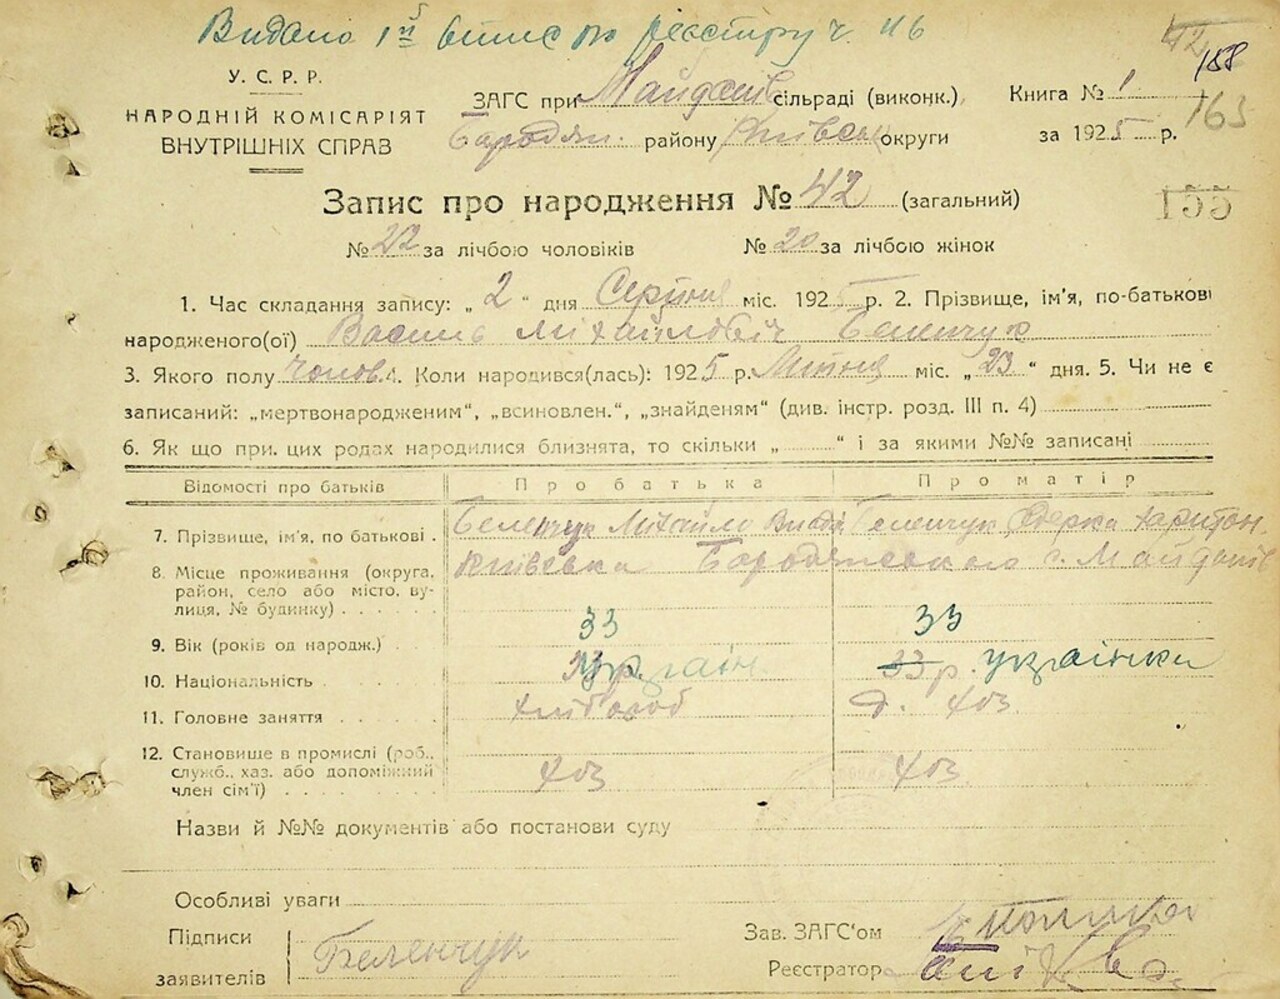 Видано 1й витяг по реєстру ч. 46
42
158
163
У. С. Р. Р.
НАРОДНІЙ КОМІСАРІЯТ
ВНУТРІШНІХ СПРАВ
ЗАГС при Майданів сільраді (виконк.),
Бородян. району Київськ округи
Книга № 1
за 1925 р.
Запис про народження № 42 (загальний)
№ 22 за лічбою чоловіків № 20 за лічбою жінок
1. Час складання запису: „2“ дня Серпня міс. 1925 р. 2. Прізвище, ім'я, по-батькові
народженого(ої) Василь Михайлович Беленчук
3. Якого полу Чолов. 4. Коли народився(лась): 1925 р. Липня міс. „23“ дня. 5. Чи не є
записаний: „мертвонародженим“, „всиновлен.“, „знайденям“ (див. інстр. розд. III п. 4)
6. Як що при. цих родах народилися близнята, то скільки „ “ і за якими №№ записані
Відомості про батьків Про батька Про матір
7. Прізвище, ім'я, по батькові . Беленчук Михайло Беленчук Харитон.
8. Місце проживання (округа, район, село або місто, вулиця, № будинку) . . . . . . Київська Бородянського с. Майданів
9. Вік (років од народж.) . 33 33
10. Національність . українець 33 р. українка
11. Головне заняття . . . . . . хлібороб д. хоз.
12. Становище в промислі (роб.,
служб., хаз. або допоміжний
член сім'ї) . . . . . . . . . хоз хоз
Назви й №№ документів або постанови суду
Особливі уваги
Підписи
заявителів Беленчук
Зав. ЗАГС'ом
Реєстратор